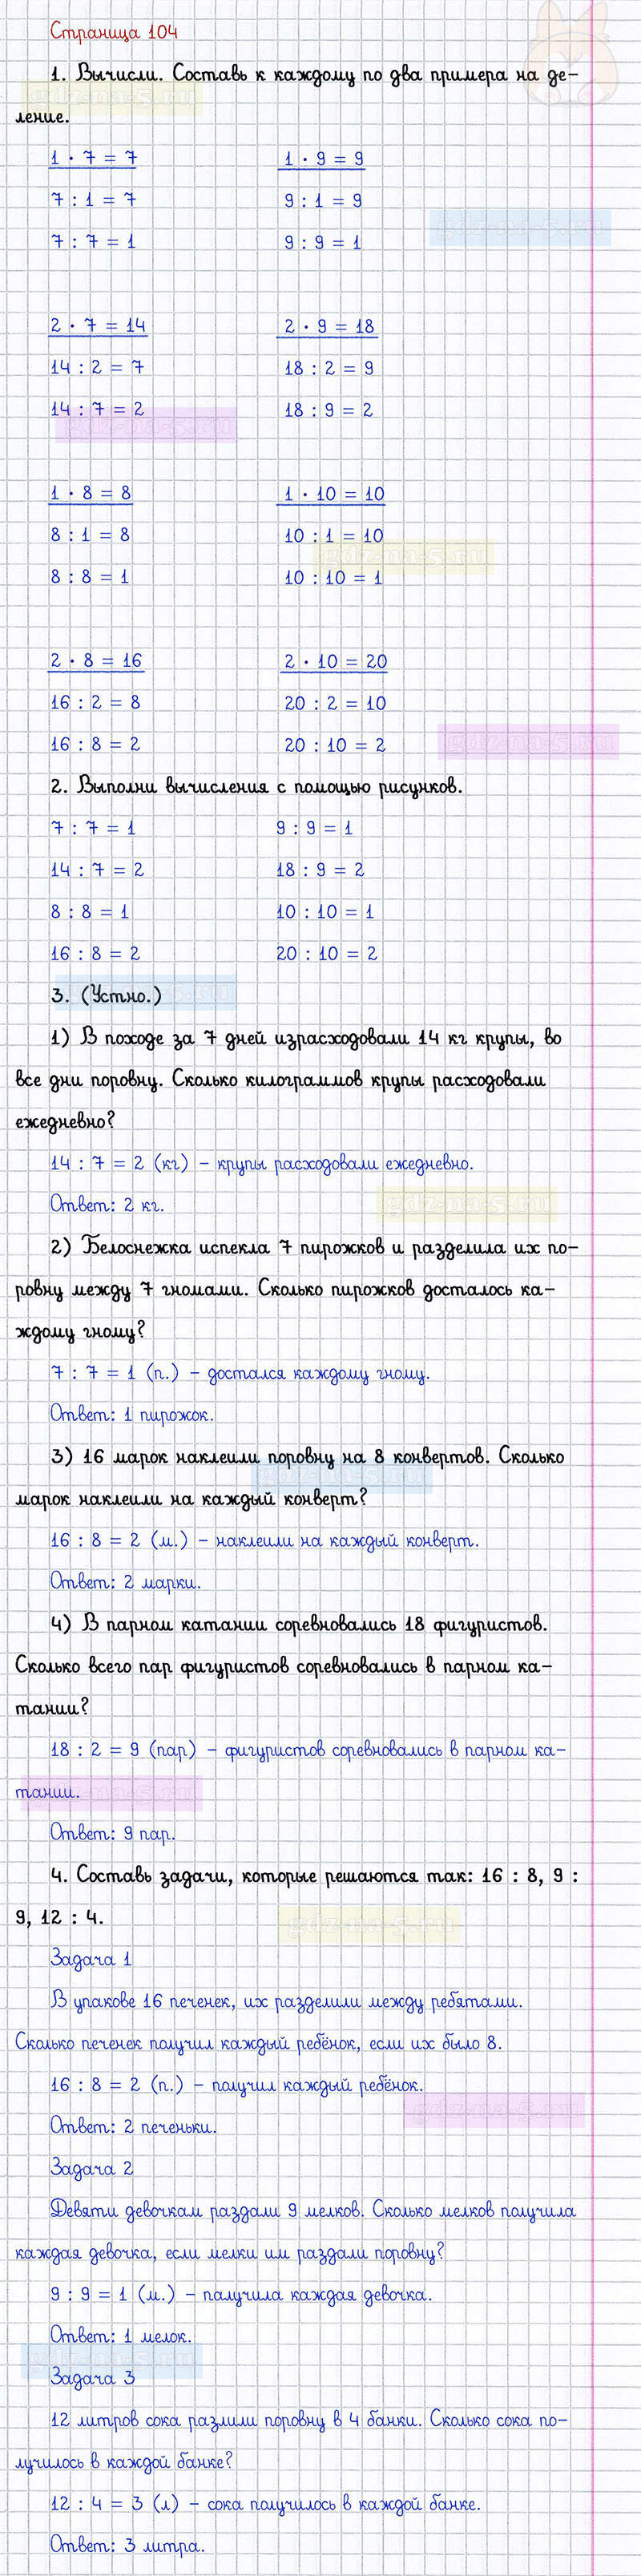 Страница 104
1. Вычисли. Составь к каждому по два примера на де-
ление.
1 · 7 = 7 1 · 9 = 9
7 : 1 = 7 9 : 1 = 9
7 : 7 = 1 9 : 9 = 1
gdz-na-5.ru
gdz-na-5.ru
2 · 7 = 14 2 · 9 = 18
14 : 2 = 7 18 : 2 = 9
14 : 7 = 2 18 : 9 = 2
gdz-na-5.ru
1 · 8 = 8 1 · 10 = 10
8 : 1 = 8 10 : 1 = 10
8 : 8 = 1 10 : 10 = 1
gdz-na-5.ru
2 · 8 = 16 2 · 10 = 20
16 : 2 = 8 20 : 2 = 10
16 : 8 = 2 20 : 10 = 2
gdz-na-5.ru
2. Выполни вычисления с помощью рисунков.
7 : 7 = 1 9 : 9 = 1
14 : 7 = 2 18 : 9 = 2
8 : 8 = 1 10 : 10 = 1
16 : 8 = 2 20 : 10 = 2
3. (Устно.)
1) В походе за 7 дней израсходовали 14 кг крупы, во
все дни поровну. Сколько килограммов крупы расходовали
ежедневно?
14 : 7 = 2 (кг) – крупы расходовали ежедневно.
Ответ: 2 кг.
gdz-na-5.ru
2) Белоснежка испекла 7 пирожков и разделила их по-
ровну между 7 гномами. Сколько пирожков досталось ка-
ждому гному?
7 : 7 = 1 (п.) – достался каждому гному.
Ответ: 1 пирожок.
3) 16 марок наклеили поровну на 8 конвертов. Сколько
марок наклеили на каждый конверт?
16 : 8 = 2 (м.) – наклеили на каждый конверт.
Ответ: 2 марки.
4) В парном катании соревновались 18 фигуристов.
Сколько всего пар фигуристов соревновались в парном ка-
тании?
18 : 2 = 9 (пар) – фигуристов соревновались в парном ка-
тании.
gdz-na-5.ru
Ответ: 9 пар.
4. Составь задачи, которые решаются так: 16 : 8, 9 :
9, 12 : 4.
gdz-na-5.ru
Задача 1
В упакове 16 печенек, их разделили между ребятами.
Сколько печенек получил каждый ребёнок, если их было 8.
16 : 8 = 2 (п.) – получил каждый ребёнок.
gdz-na-5.ru
Ответ: 2 печеньки.
Задача 2
Девяти девочкам раздали 9 мелков. Сколько мелков получила
каждая девочка, если мелки им раздали поровну?
9 : 9 = 1 (м.) – палучила каждая девочка.
Ответ: 1 мелок.
gdz-na-5.ru
Задача 3
12 литров сока разлили поровну в 4 банки. Сколько сока по-
лучилось в каждой банке?
12 : 4 = 3 (л) – сока получилось в каждой банке.
Ответ: 3 литра.